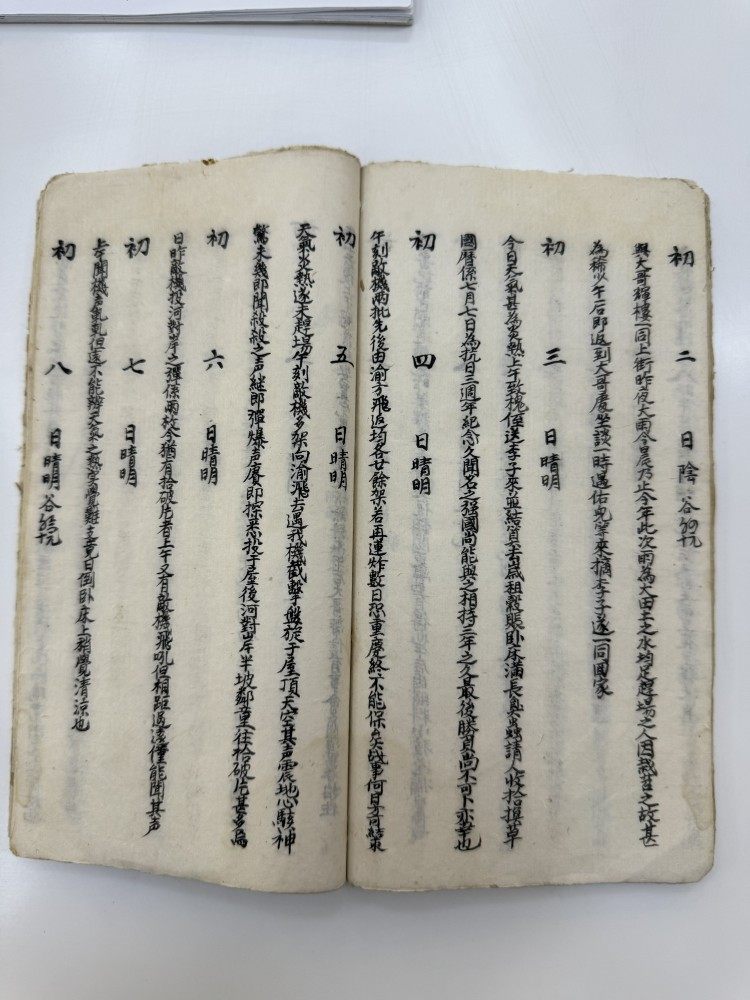 初二日陰谷
與大哥輝樓一同上街昨夜大雨今晨乃止今年此次雨為大田土之水均足趕場之人因栽苕之故甚
為稀少午后即返到大哥處坐談一時遇佑兒等來摘李子遂一同回家
初三日晴明
今日天氣甚為炎熱上午致槐侄送李子來並結算去歲租穀賬臥床滿長臭虫請人收拾換草
國曆係七月七日為抗日三週年紀念久聞名之强國尚能與之相持三年之久最後勝負尚不可卜亦幸也
初四日晴明
午刻敵機兩批先後由渝方飛返均各廿餘架若再連炸數日恐重慶終不能保矣战事何日方可結束
初五日晴明
天氣炎熱遂未趕場午刻敵機多架向渝飛去遇我機截擊盤旋于屋頂天空其声震地心駭神
驚未幾即聞殺殺之声継即彈爆声
即擦悉投于屋後河對岸半坡鄰童往拾破片甚多為
初六日晴明
日昨敵機投河對岸之彈係兩枚今猶有拾破片者上午又有敵機飛吼但相距過遠僅能聞其声
初七日晴明
上午聞機声軋軋但遠不能辨天氣之熱
覺難支竟日倒卧床上稍覺清涼也
初八日晴明谷